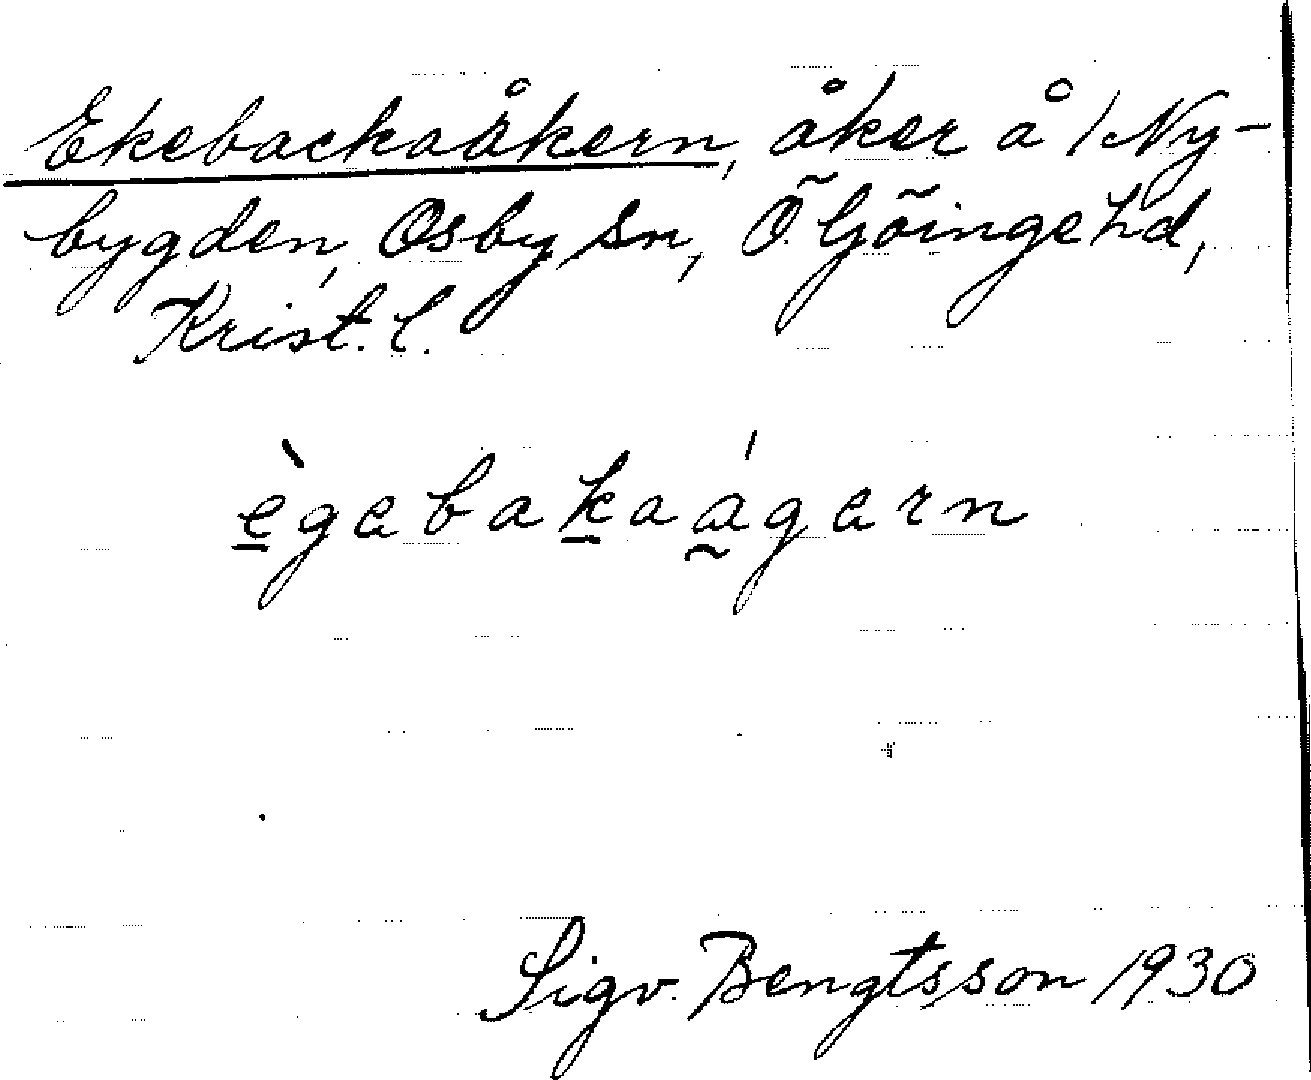 Ekebackaåkern, åker å 1 Ny-
bygden, Osby sn, Ö. Göinge hd,
Krist. l.
ègebakaágarn
Sigv. Bengtsson 1930